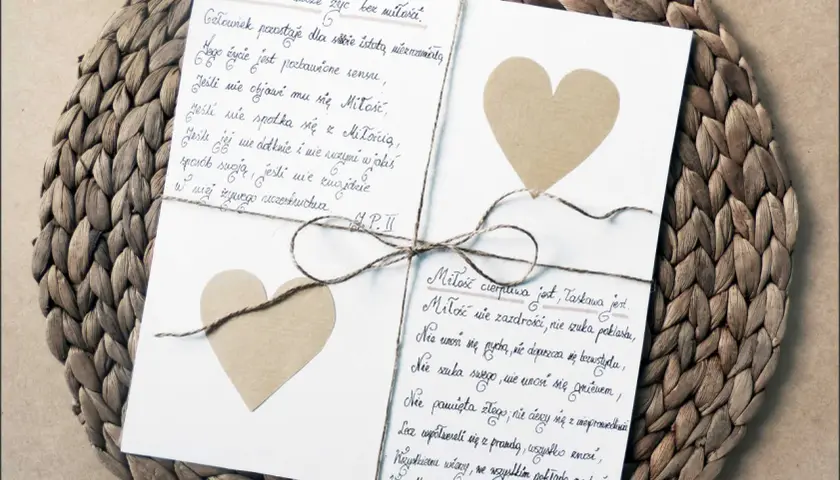 żyć bez miłości.
Człowiek pozostaje dla siebie istotą niezrozumiałą
Jego życie jest pozbawione sensu,
Jeśli nie objawi mu się Miłość,
Jeśli nie spotka się z Miłością,
Jeśli jej nie dotknie i nie uczyni w jakiś
sposób swoją, jeśli nie znajdzie
w niej żywego uczestnictwa
J. P. II
Miłość cierpliwa jest, łaskawa jest.
Miłość nie zazdrości, nie szuka poklasku,
Nie unosi się pychą, nie dopuszcza się bezwstydu,
Nie szuka swego, nie unosi się gniewem,
Nie pamięta złego, nie cieszy się z niesprawiedliwości
Lecz współweseli się z prawdą, wszystko znosi,
Wszystkiemu wierzy, we wszystkim pokłada